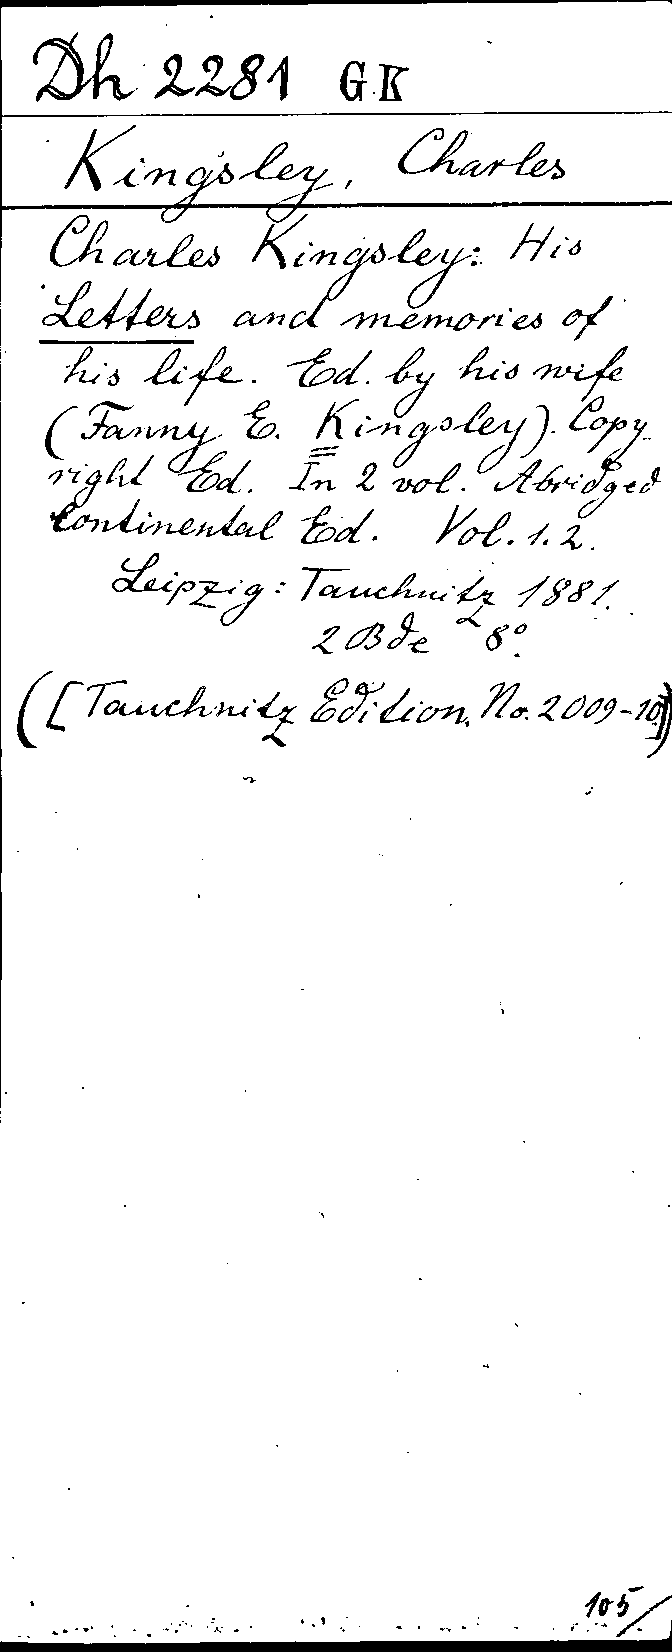 Dh 2281 GK
Kingsley, Charles
Charles Kingsley: His
Letters and memories of
his life. Ed. by his wife
(Fanny E. Kingsley). Copy
right Ed. In 2 vol. Abridged
continental Ed. Vol. 1. 2.
Leipzig: Tauchnitz 1881.
2 Bde 8°.
([Tauchnitz Edition. No. 2009-10])
105/